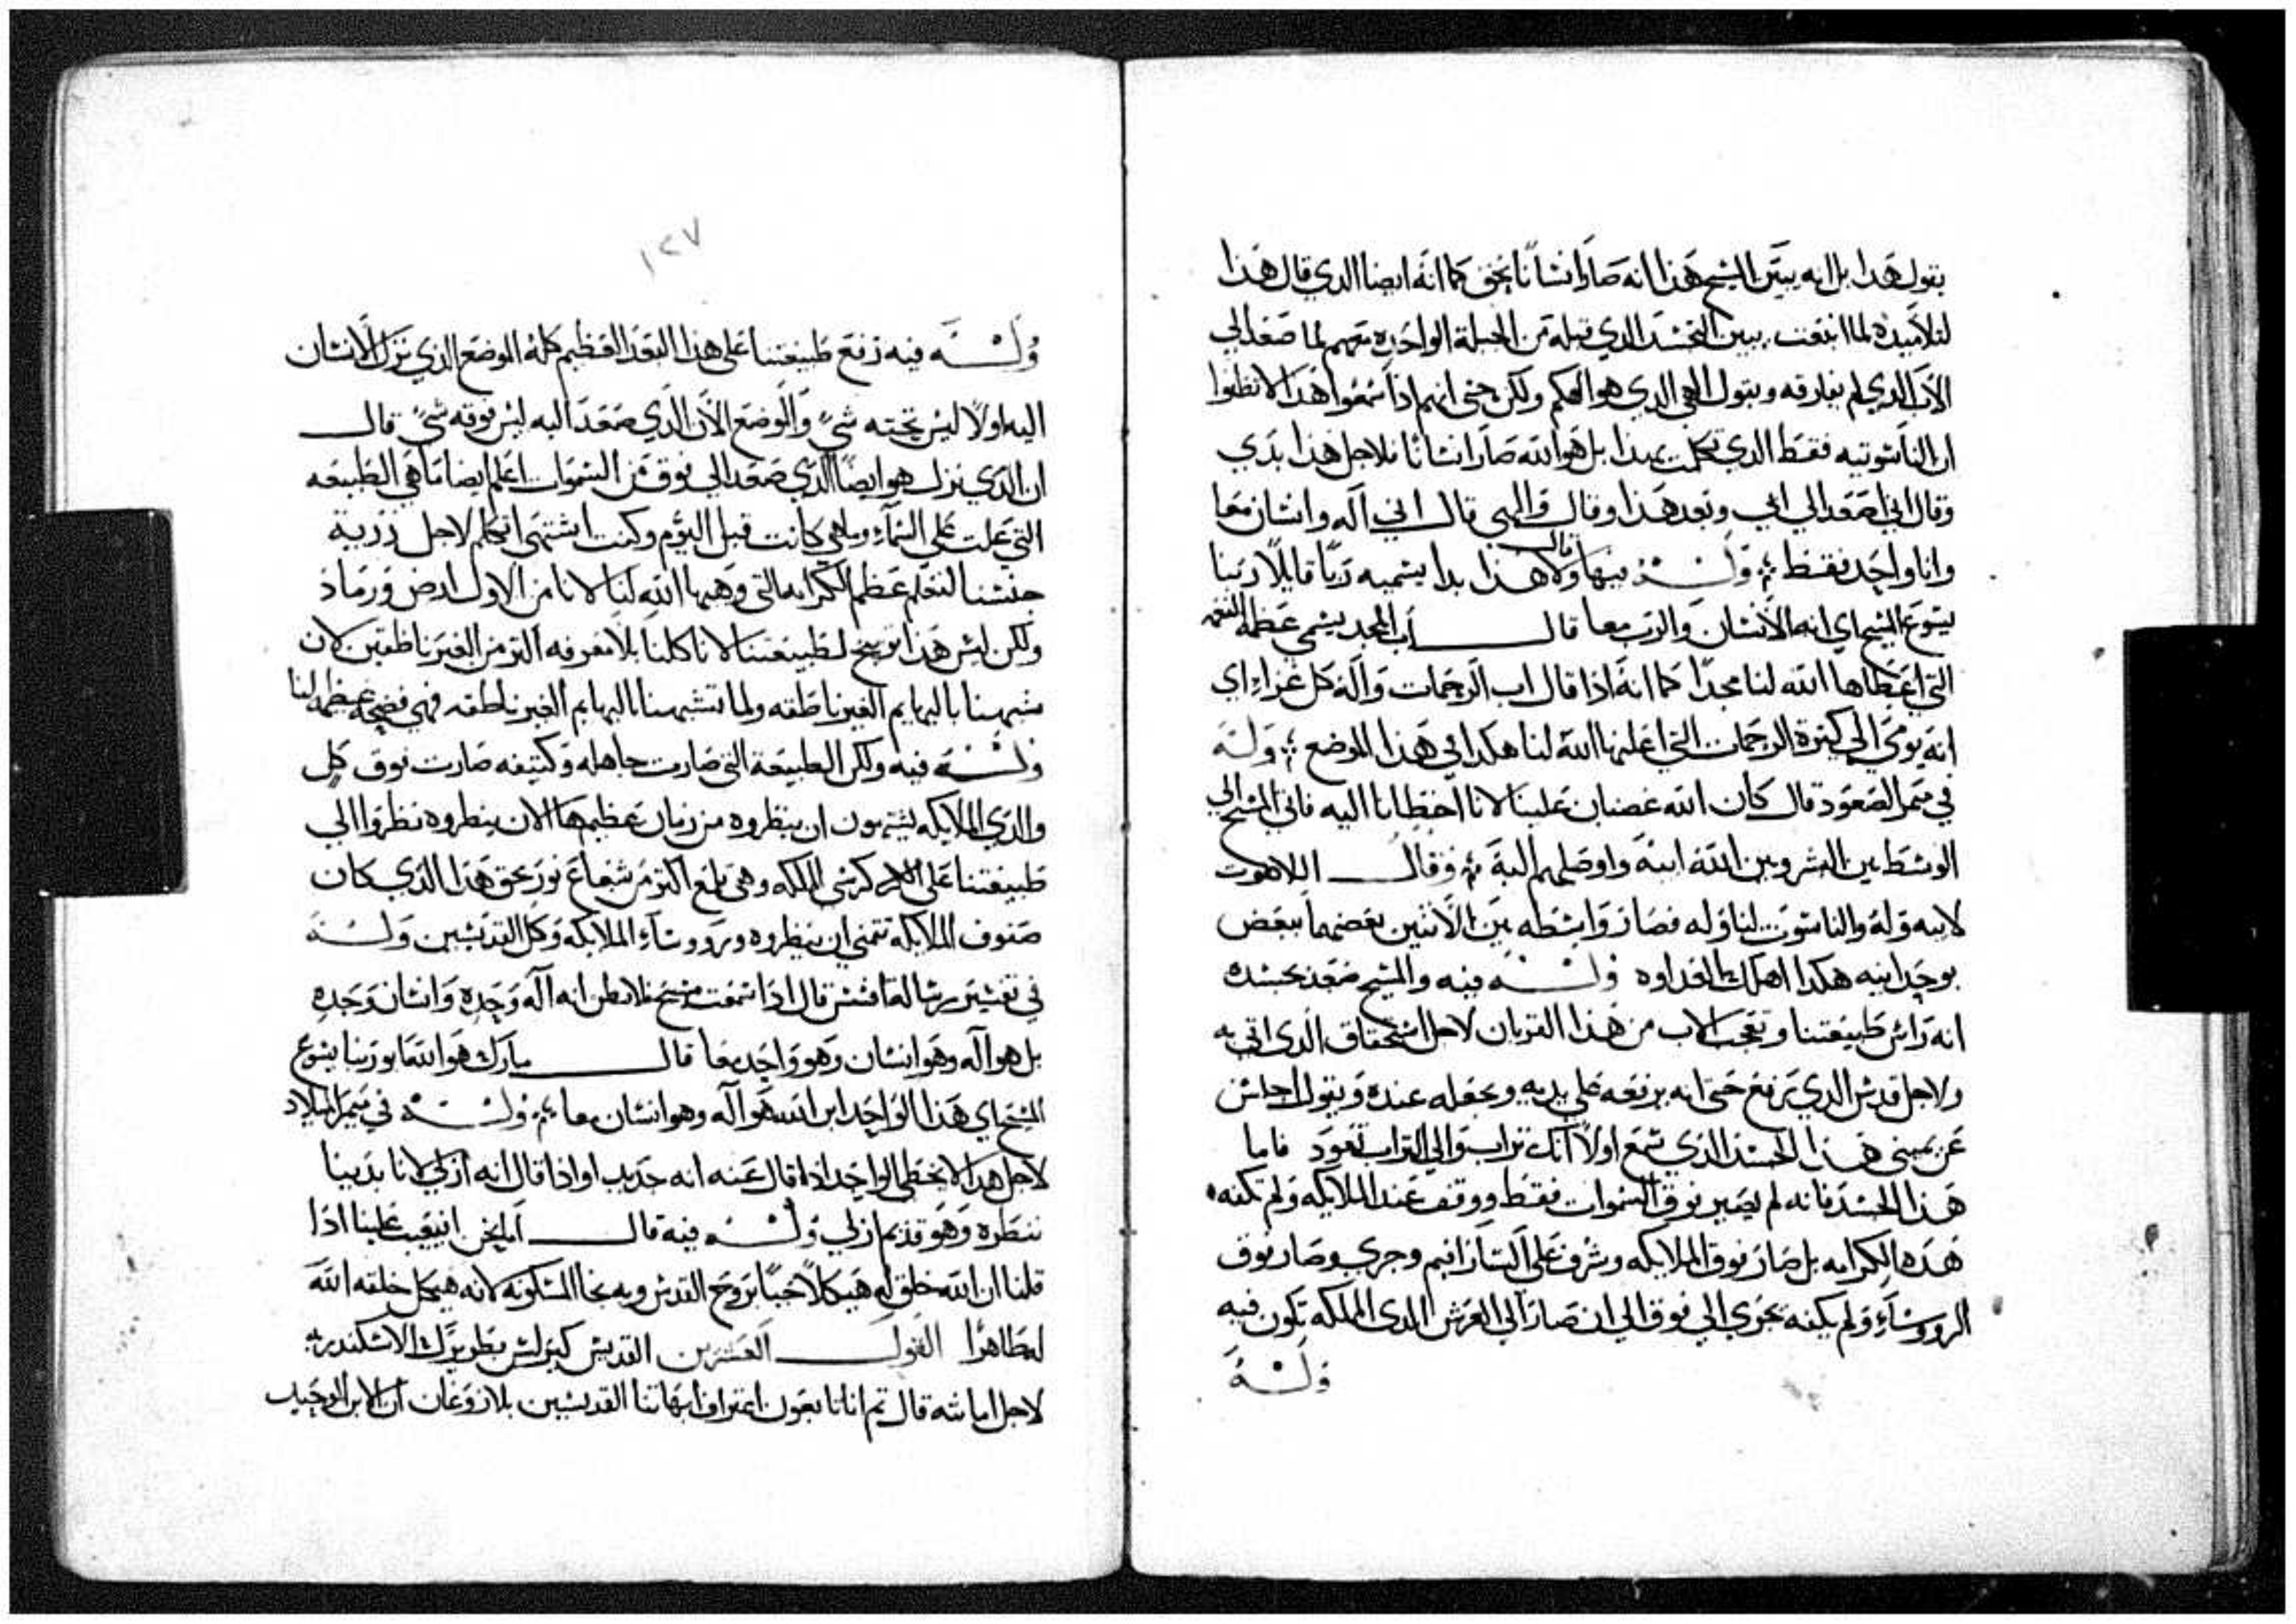 يقول هذا بل انه يبين المسيح هذا انه صار انسانا بحق كما انه ايضا الدي قال هذا
لتلاميده لما انبعت يبين التجسد الدي قبله من الجبلة الواحده معهم لما صعد الي
الاب الدي لم يفارقه ويقول الهي الدي هو الهكم ولكن حتى انهم اذا سمعوا هذا لا تظنوا
ان الناسوتيه فقط الدي تكلمت بهذا بل هو الله صار انسانا فلاجل هذا بدي
وقال اني اصعد الي ابي وبعد هذا وقال والهي قال اني اله وانسان معا
وانا واحد فقط وله فيها قال ولا هذا بدا يسميه ربا قايلا ربنا
يسوع المسيح اي انه الانسان والرب معا قال اب المجد يسمي عظمة النعم
التي اعطاها الله لنا مجدا كما انه اذا قال اب الرحمات واله كل عزاء اي
انه يومي الي كثرة الرحمات التي اعلنها الله لنا هكدا في هذا الموضع وله
في ميمر الصعود قال كان الله غضبان علينا لانا اخطانا اليه فاتي المسيح الي
الوسط بين البشر وبين الله ابيه واوصلهم اليه وقال اللاهوت
لابيه وله والناسوت لنا وله فصار واسطه بين الاتنين بعضهما ببعض
بوحدانيه هكدا اهلك العداوه وله فيه والمسيح صعد بجسده
انه راس طبيعتنا وتعجب الاب من هذا القربان لاجل استحقاق الدي اتي به
ولاجل قدس الدي يرفع حتى انه يرفعه علي يديه ويجعله عنده ويقول اجلس
عن يميني هذا الجسد الذي سمع اولا انك تراب والي التراب تعود فاما
هذا الجسد فانه لم يصير فوق السموات فقط ووقف عند الملايكه ولم تكفه
هذه الكرامه بل صار فوق الملايكه وشرف علي السارافيم وجري وصار فوق
الرووساء ولم يكفه يجري الي فوق الي ان صار الي العرش الدي المملكه تكون فيه
وله
١٢٧
وله فيه رفع طبيعتنا علي هذا البعد العظيم كله الموضع الذي نزل الانسان
اليه اولا ليس تحته شي والموضع الان الذي صعد اليه ليس فوقه شي قال
ان الذي نزل هو ايضا الذي صعد الي فوق من السموات اعلم ايضا ما هي الطبيعه
التي علت علي السماء وما هي كانت قبل اليوم وكنت اشتهي اتكلم لاجل زرية
جنسنا لنعلم عظم الكرامه التي وهبها الله لنا لانا من الاول ارض ورماد
ولكن ليس هذا توبيخ لطبيعتنا لانا كلنا بلا معرفه اكتر من الغير ناطقين لان
شبهنا بالبهايم الغير ناطقه ولما تشبهنا بالبهايم الغير ناطقه فهي فضيحه عظيمه لنا
وله فيه ولكن الطبيعة التي صارت جاهله وكتيفه صارت فوق كل
والدي الملايكه يشتهون ان ينظروه من زمان عظيم ها الان ينظروه نظروا الي
طبيعتنا علي كرسي الملكه وهي تلمع اكتر من شعاع نور بحق هذا الذي كان
صفوف الملايكه تتمني ان ينظروه ورووساء الملايكه وكل القديسين وله
في تفسير رسالة افسس قال اذا سمعت مسيح فلا تظن انه اله وحده وانسان وحده
بل هو اله وهو انسان وهو واحد معا قال مبارك هو الله ابو ربنا يسوع
المسيح اي هذا الواحد ابن الله هو اله وهو انسان معا وله في ميمر الميلاد
لاجل هذا لا يخطي الواحد اذا قال عنه انه جديد او اذا قال انه ازلي لانا بدينا
ننظره وهو قديم ازلي وله فيه قال اما نحن ان يبغت علينا اذا
قلنا ان الله خلق له هيكلا حيا بروح القدس وبه نجا المسكونه لانه هيكل خلقه الله
له طاهرا القول العشرين القديس كيرلس بطريرك الاسكندريه
لاجل امانته قال ثم اننا تابعون اعتراف ابهاتنا القديسين بلا زوغان ان الابن الوحيد